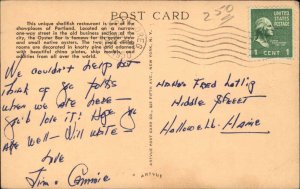 POST CARD
250
This unique shellfish restaurant is one of the
showplaces of Portland. Located on a narrow
one-way street in the older business section of the
city, the Oyster Bar is famous for its
and small native oysters. The two main dining
rooms are decorated in knotty pine and adorned
with beautiful china plates, ship models, and
oddities from all over the world.
1¢
UNITED STATES POSTAGE
1 CENT 1
We couldn't help but
think of you folks
when we are here -
you'd love it! Hope you
are well - Will write
Love
Jim & Connie
Fred
Middle Street
Hallowell - Maine
ARTVUE POST CARD CO. 225 FIFTH AVE., NEW YORK, N. Y.
ARTVUE